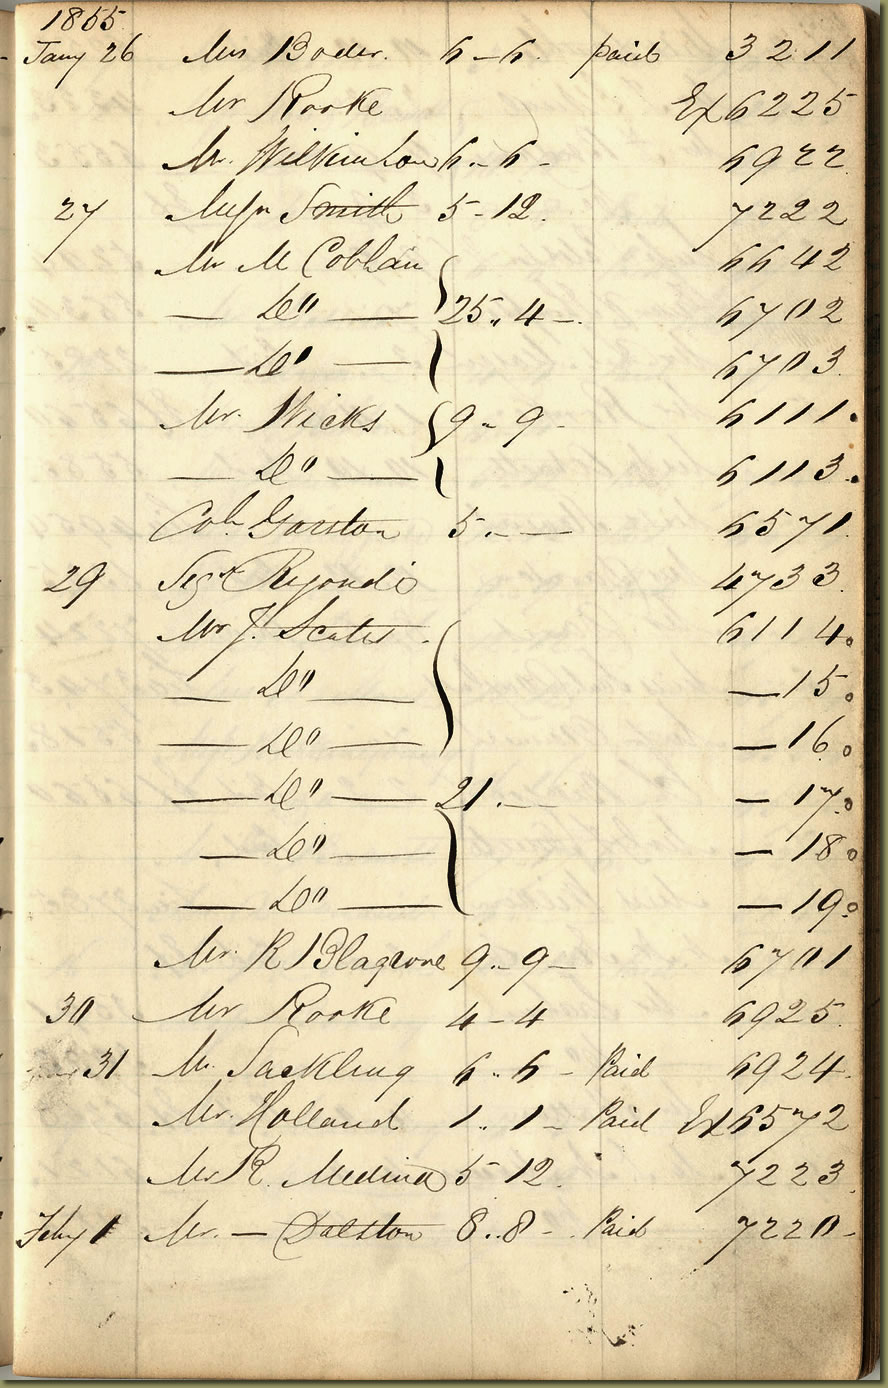 1855
Jany 26 Mrs Boder. 6-6. paid 3211
Mr Rooke Ex 6225
Mr. Wilkinson 6..6- 6922
27 Smith 5-12. 7222
Mr M Coblan 6642
— Do" — 25..4-. 6702
— Do" — 6703
Mr. Wicks 9..9- 6111.
— Do" — 6113.
Col. Garston 5.. — 6571
29 Segr Regondi 4733
Mr J. Scates. 6114.
— Do" — —15.
— Do" — —16.
— Do" — 21.— —17.
— Do" — —18.
— Do" — —19.
Mr. R Blagrove 9..9- 6701
30 Mr Rooke 4-4 6925.
31 M. Sackling 6..6- Paid 6924.
Mr. Holland 1..1- Paid Ex 6572
Mr R. Medina 5-12. 7223.
Feby 1 Mr. — Dalston 8..8-. Paid 7220-